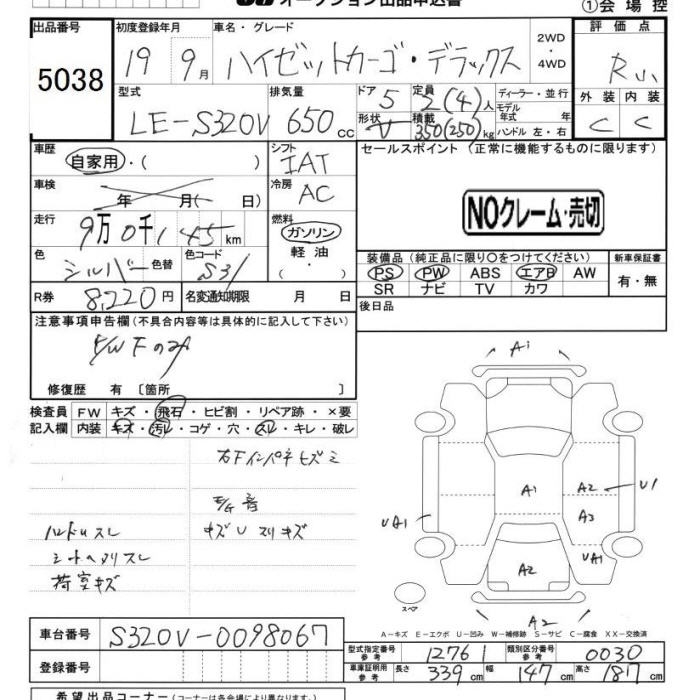 オークション出品申込書
①会場控
出品番号 初度登録年月 車名・グレード 評価点
5038 19 9月 ハイゼットカーゴ・デラックス 2WD・4WD R
型式 排気量 ドア 定員 ディーラー・並行 外装 内装
LE-S320V 650cc 5 2(4)人 モデル年式 年 C C
形状 V 積載 350(250)kg ハンドル 左・右
車歴 自家用・( ) シフト IAT セールスポイント (正常に機能するものに限ります)
車検 年 月( ・ ) 冷房 AC
NOクレーム・売切
走行 9万0千145km 燃料 ガソリン 軽油
色 シルバー 色替 色コード S31
装備品(純正品に限り○をつけてください) 新車保証書
PS PW ABS エアB AW 有・無
SR ナビ TV カワ
R券 8220円 名変通知期限 月 日
後日品
注意事項申告欄(不具合内容等は具体的に記入して下さい)
P/W Fのみ
修復歴 有 [箇所 ]
検査員 FW キズ・飛石・ヒビ割・リペア跡・×要
記入欄 内装 キズ・汚レ・コゲ・穴・スレ・キレ・破レ
右Fインパネヒズミ
E/G音
キズU スリキズ
ハンドルスレ
シートヘタリスレ
荷室キズ
A1
A1 A2 U1
UA1 A3
UA1
A2
スペア A2
A-キズ E-エクボ U-凹み W-補修跡 S-サビ C-腐食 XX-交換済
車台番号 S320V-0098067
型式指定番号 参考 12761 類別区分番号 参考 0030
登録番号 車庫証明用 参考 長さ 339cm 幅 147cm 高さ 187cm
希望出品コーナー